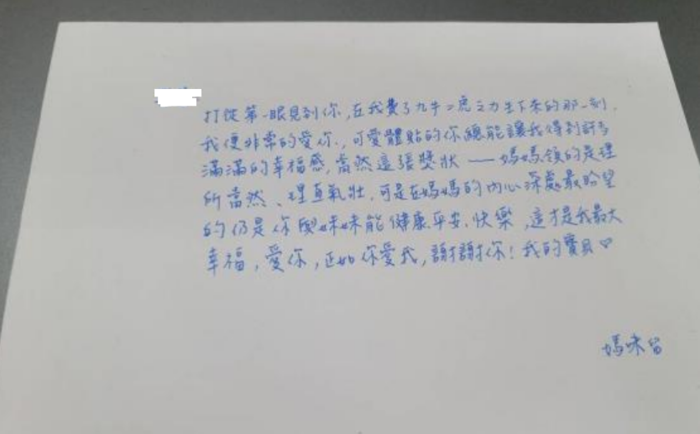 打從第一眼見到你,在我費了九牛二虎之力生下來的那一刻,
我便非常的愛你.,可愛體貼的你總能讓我得到許多
滿滿的幸福感,當然這張獎狀——媽媽領的是理
所當然、理直氣壯,可是在媽媽的內心深處最盼望
的仍是你與妹妹能健康.平安.快樂,這才是我最大
幸福,愛你,正如你愛我,謝謝你!我的寶貝♡
媽咪留